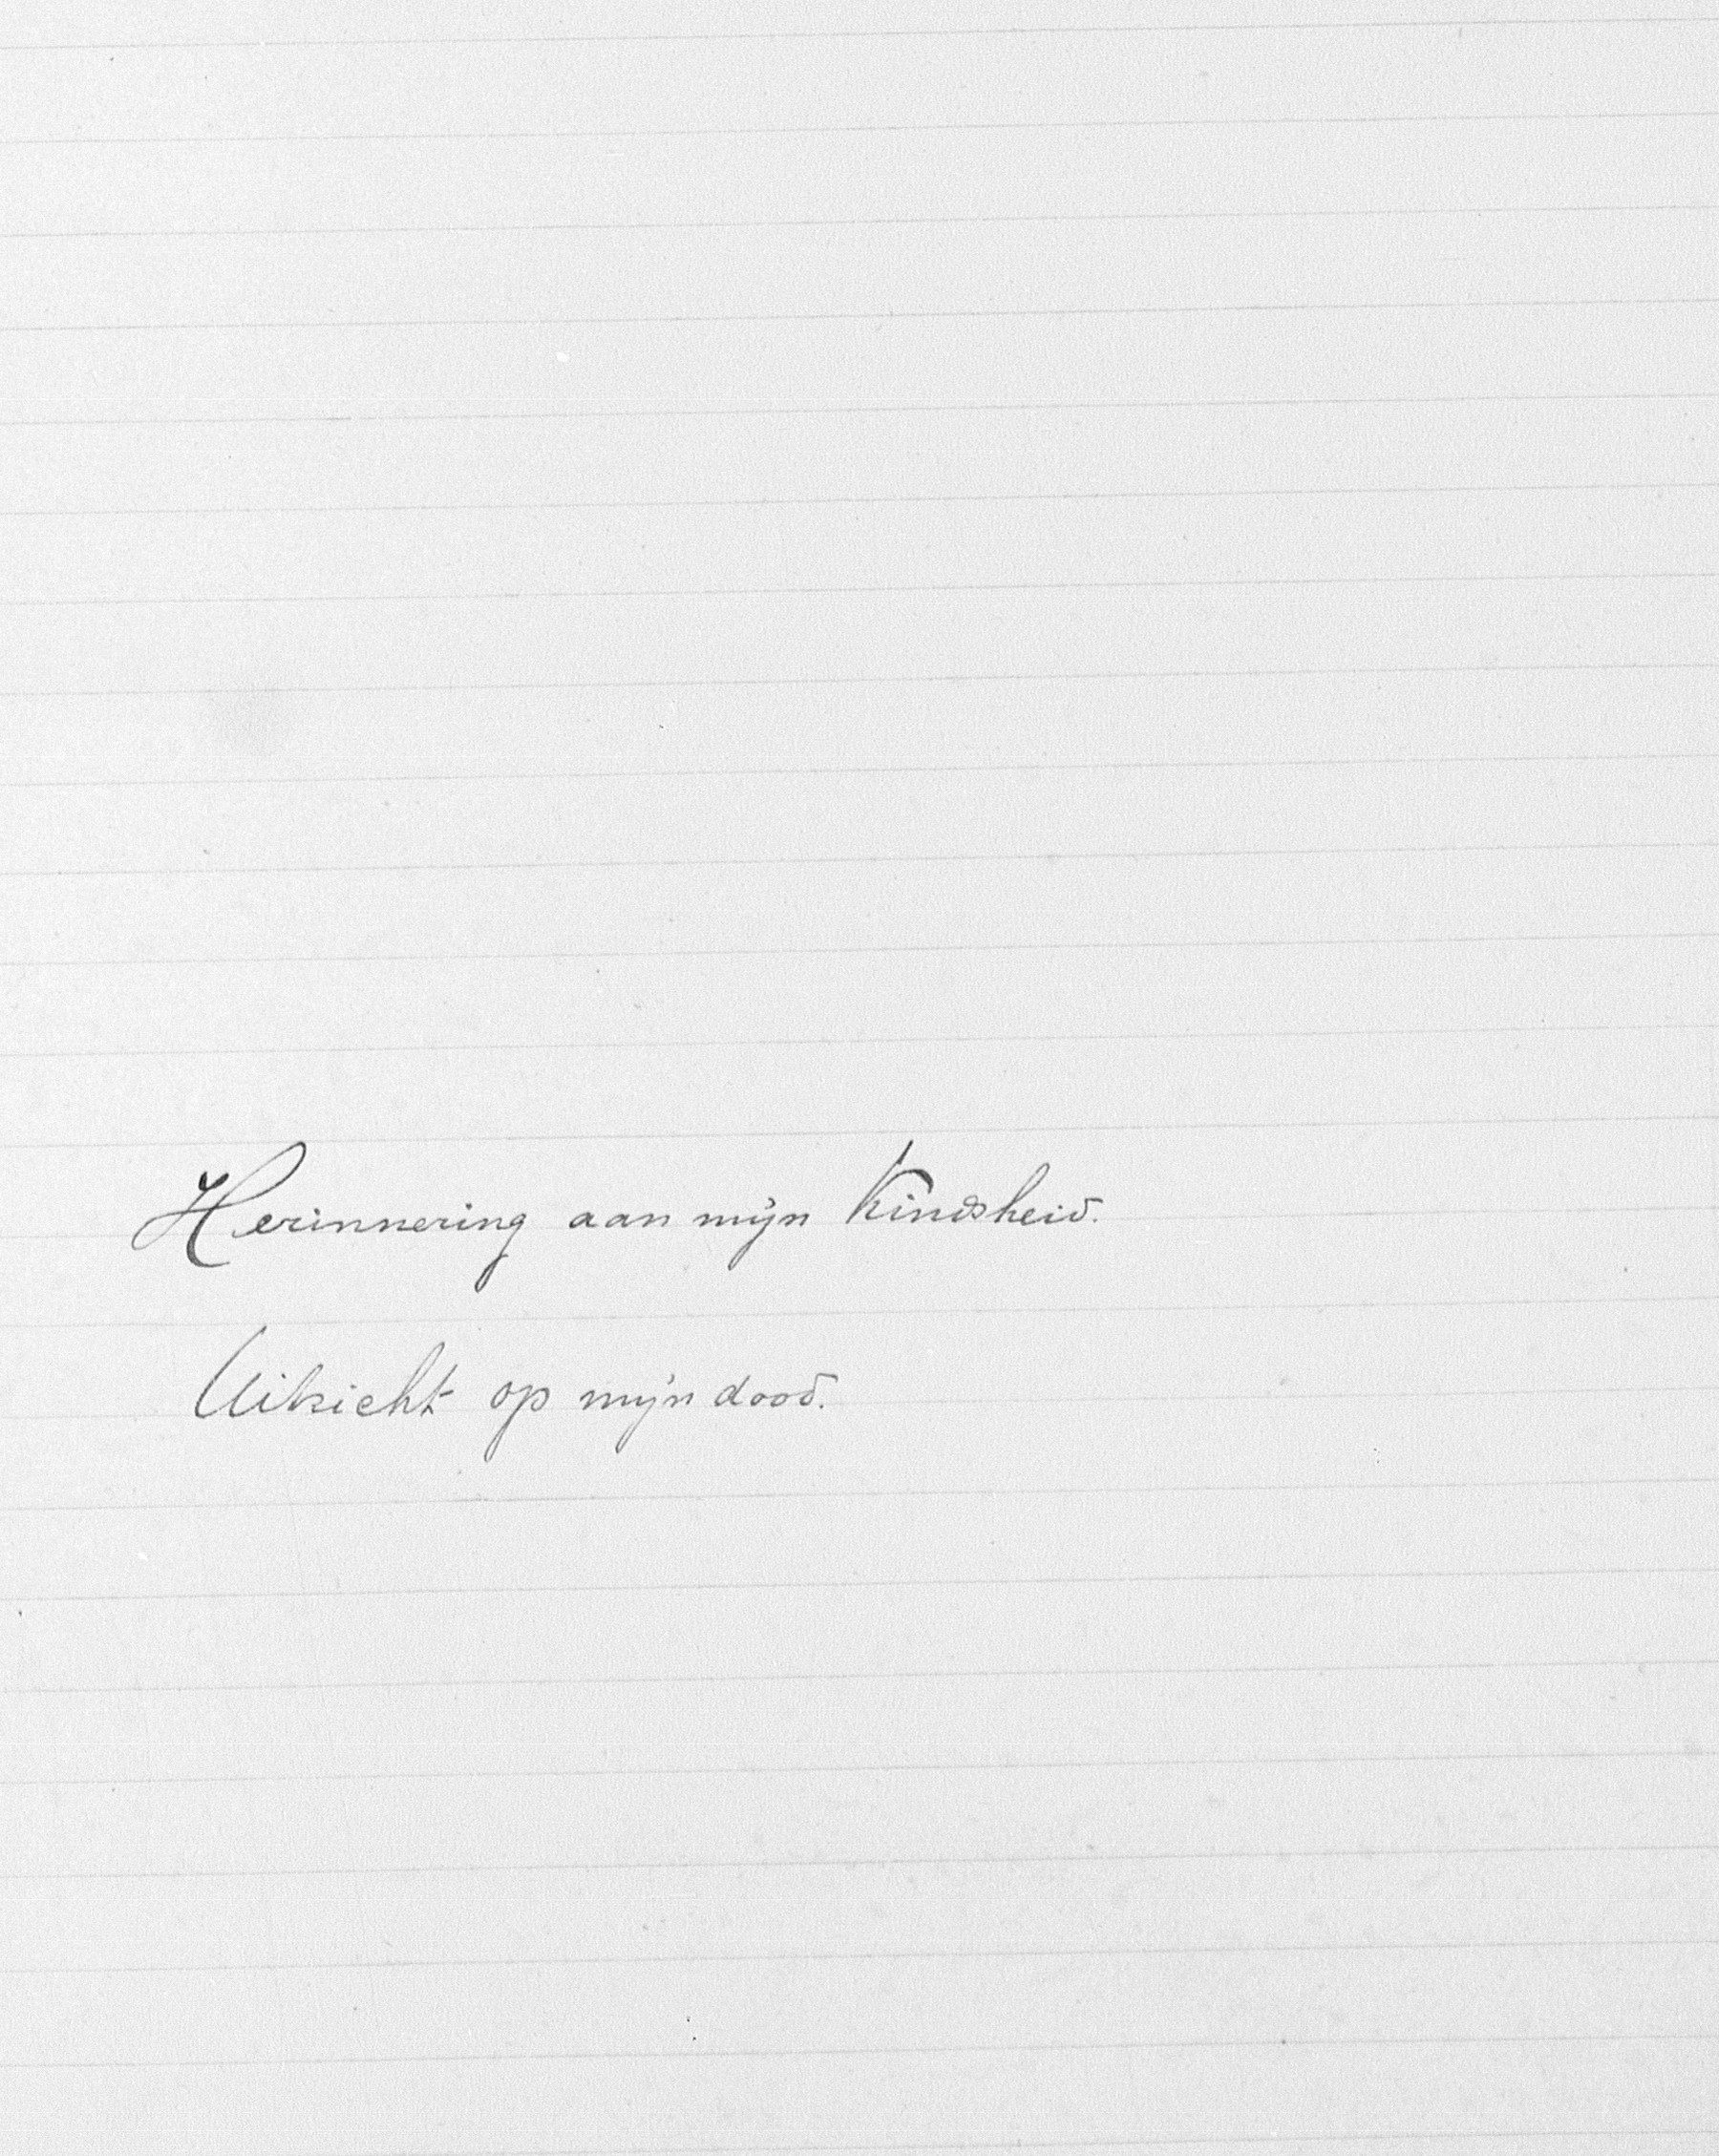 Herinnering aan mijn Kindsheid.
Uitzicht op mijn dood.